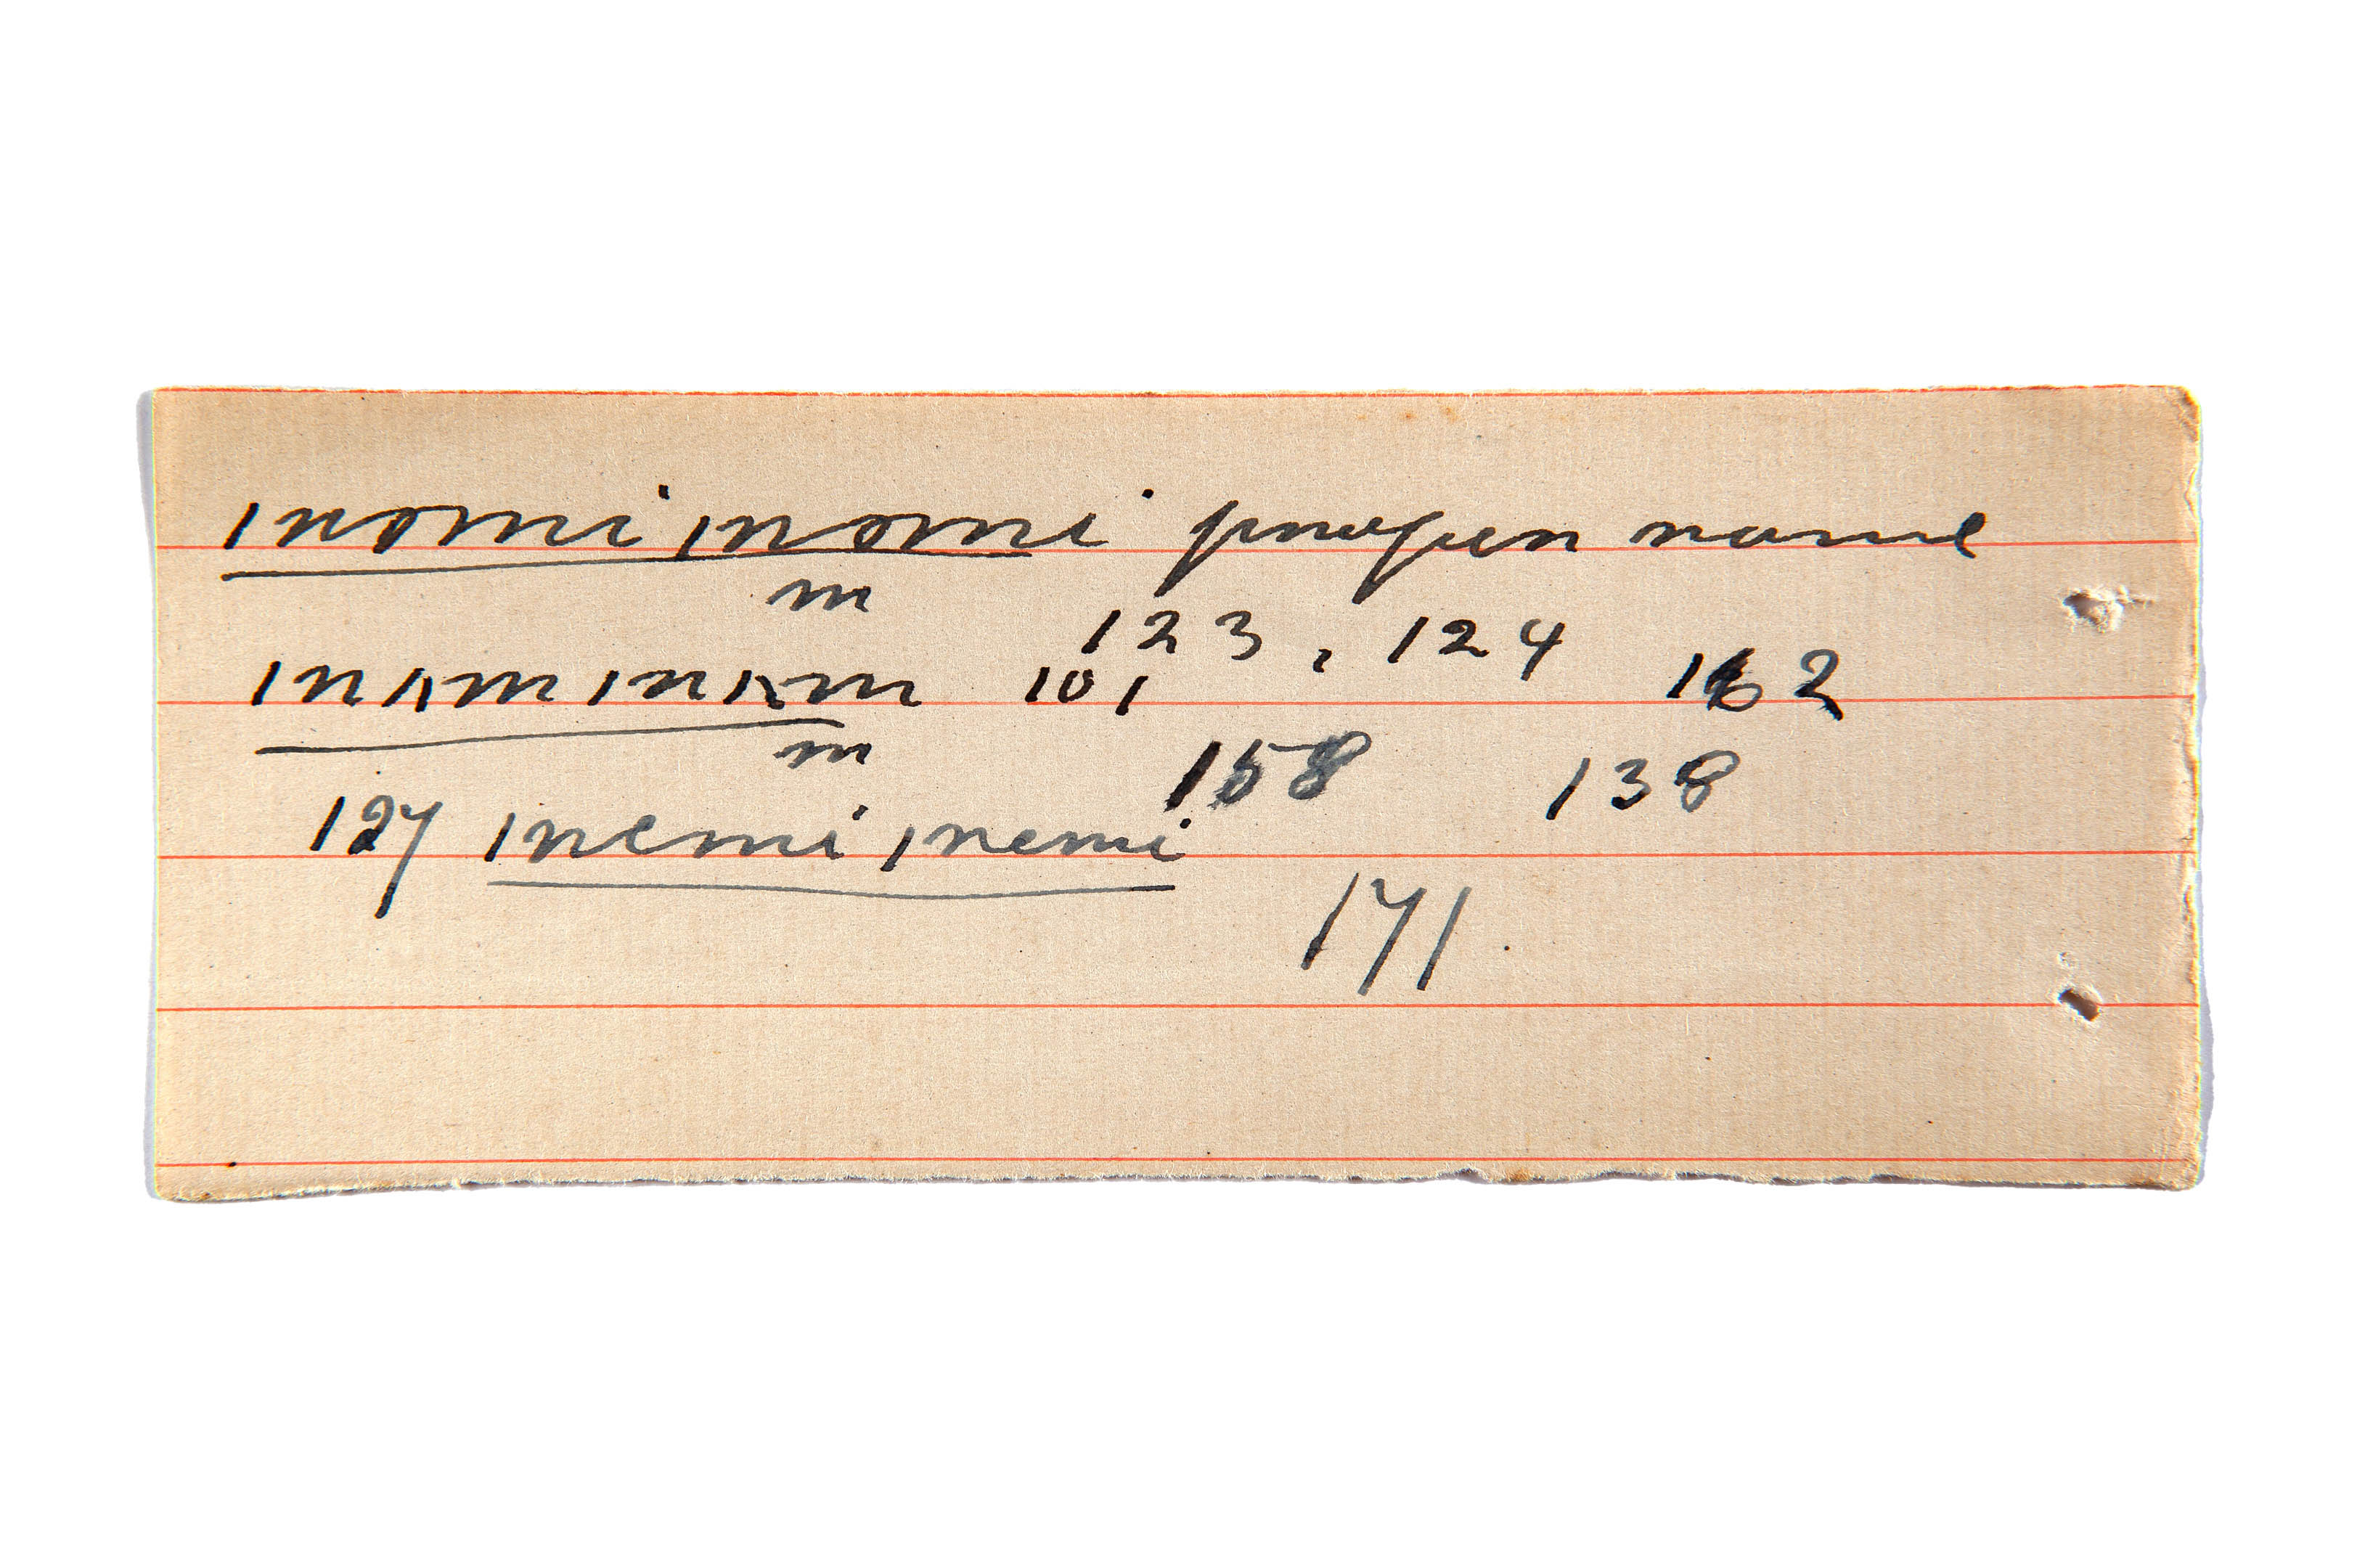 |nomi|nomi proper name
m 123, 124
|nʌm|nʌm 101 162
m 158 138
127 |nemi|nemi
171.